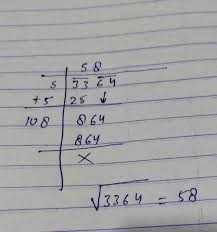 58
5 3364
+5 25 ↓
108 864
864
×
√3364 = 58